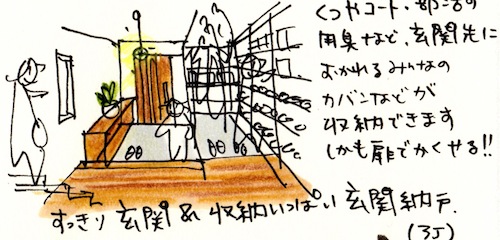 くつやコート、部活の
用具など、玄関先に
おかれるみんなの
カバンなどが
収納できます
しかも扉でかくせる!!
すっきり玄関&収納いっぱい玄関納戸.
(3J)